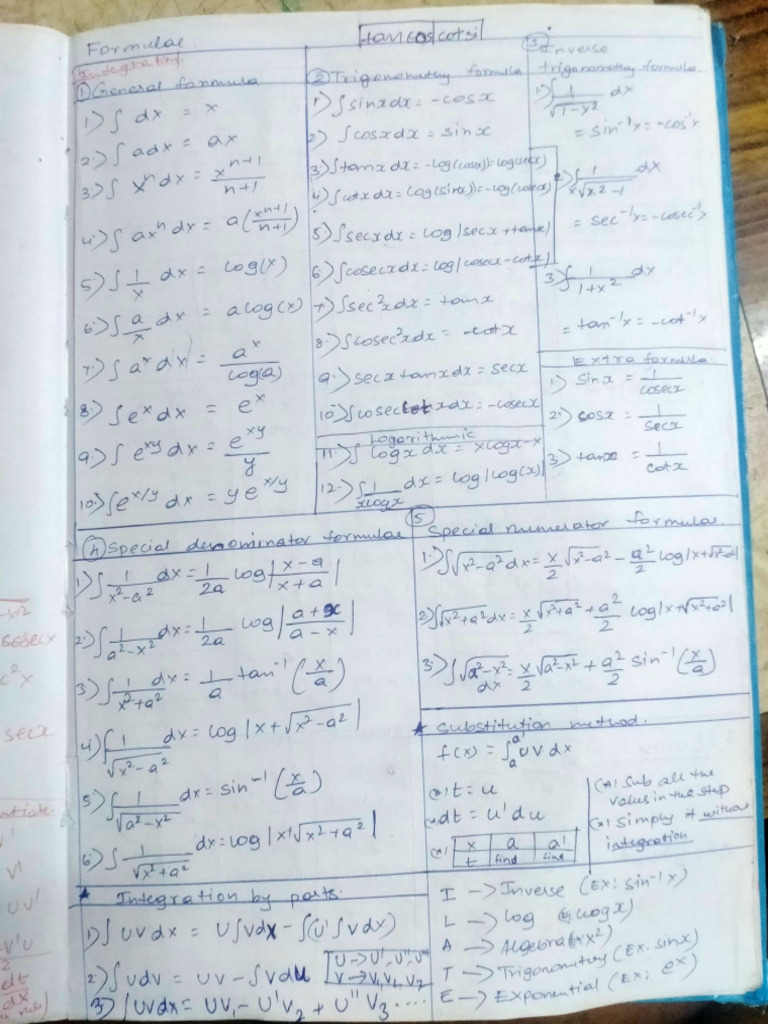 Formulae.
tancos cotsi
Integration
① General formula
1.) ∫ dx = x
2.) ∫ adx = ax
3.) ∫ xⁿ dx = xⁿ⁺¹/n+1
4.) ∫ axⁿ dx = a(xⁿ⁺¹/n+1)
5.) ∫ 1/x dx = log(x)
6.) ∫ a/x dx = a log(x)
7.) ∫ aˣ dx = aˣ/log(a)
8.) ∫ eˣ dx = eˣ
9.) ∫ eˣʸ dx = eˣʸ/y
10.) ∫ e^x/y dx = y e^x/y
② Trigonometry formula
1.) ∫ sinx dx = -cosx
2.) ∫ cosx dx = sinx
3.) ∫ tanx dx = -log(cosx) = log(secx)
4.) ∫ cotx dx = log(sinx) = -log(cosecx)
5.) ∫ secx dx = log|secx + tanx|
6.) ∫ cosecx dx = log|cosecx - cotx|
7.) ∫ sec²x dx = tanx
8.) ∫ cosec²x dx = -cotx
9.) secx tanx dx = secx
10.) ∫ cosec cot x dx = -cosecx
Logorithmic
11.) ∫ logx dx = xlogx - x
12.) ∫ 1/xlogx dx = log|log(x)|
③ Inverse
trigonometry formula
1.) ∫ 1/√1-x² dx
= sin⁻¹x = -cos⁻¹x
2.) ∫ 1/x√x²-1 dx
= sec⁻¹x = -cosec⁻¹x
3.) ∫ 1/1+x² dx
= tan⁻¹x = -cot⁻¹x
Extra formula
1.) sinx = 1/cosecx
2.) cosx = 1/secx
3.) tanx = 1/cotx
④ Special denominator formulae
1.) ∫ 1/x²-a² dx = 1/2a log|x-a/x+a|
2.) ∫ 1/a²-x² dx = 1/2a log|a+x/a-x|
3.) ∫ 1/x²+a² dx = 1/a tan⁻¹(x/a)
4.) ∫ 1/√x²-a² dx = log|x+√x²-a²|
5.) ∫ 1/√a²-x² dx = sin⁻¹(x/a)
6.) ∫ 1/√x²+a² dx = log|x+√x²+a²|
⑤ Special numerator formulae.
1.) ∫√x²-a² dx = x/2 √x²-a² - a²/2 log|x+√x²-a²|
2.) ∫√x²+a² dx = x/2 √x²+a² + a²/2 log|x+√x²+a²|
3.) ∫√a²-x² dx = x/2 √a²-x² + a²/2 sin⁻¹(x/a)
★ Substitution method.
f(x) = ∫ₐᵃ' UV dx
(*) t = u
(*) dt = u' du
(*) x a a'
t find find
(*) Sub all the
values in the step
(*) Simply it without
integration
★ Integration by parts.
1.) ∫ UV dx = U∫Vdx - ∫(U'∫Vdx)
2.) ∫ udv = UV - ∫Vdu
U → U', U'', U'''
V → V₁, V₂, V₃
3.) ∫ UVdx = UV₁ - U'V₂ + U''V₃ ....
I → Inverse (Ex: sin⁻¹x)
L → log (Ex: logx)
A → Algebra (Ex: x²)
T → Trigonometry (Ex. sinx)
E → Exponential (Ex: eˣ)
cosecx
c²x
secx
V'
UV'
V'U
dt
dx